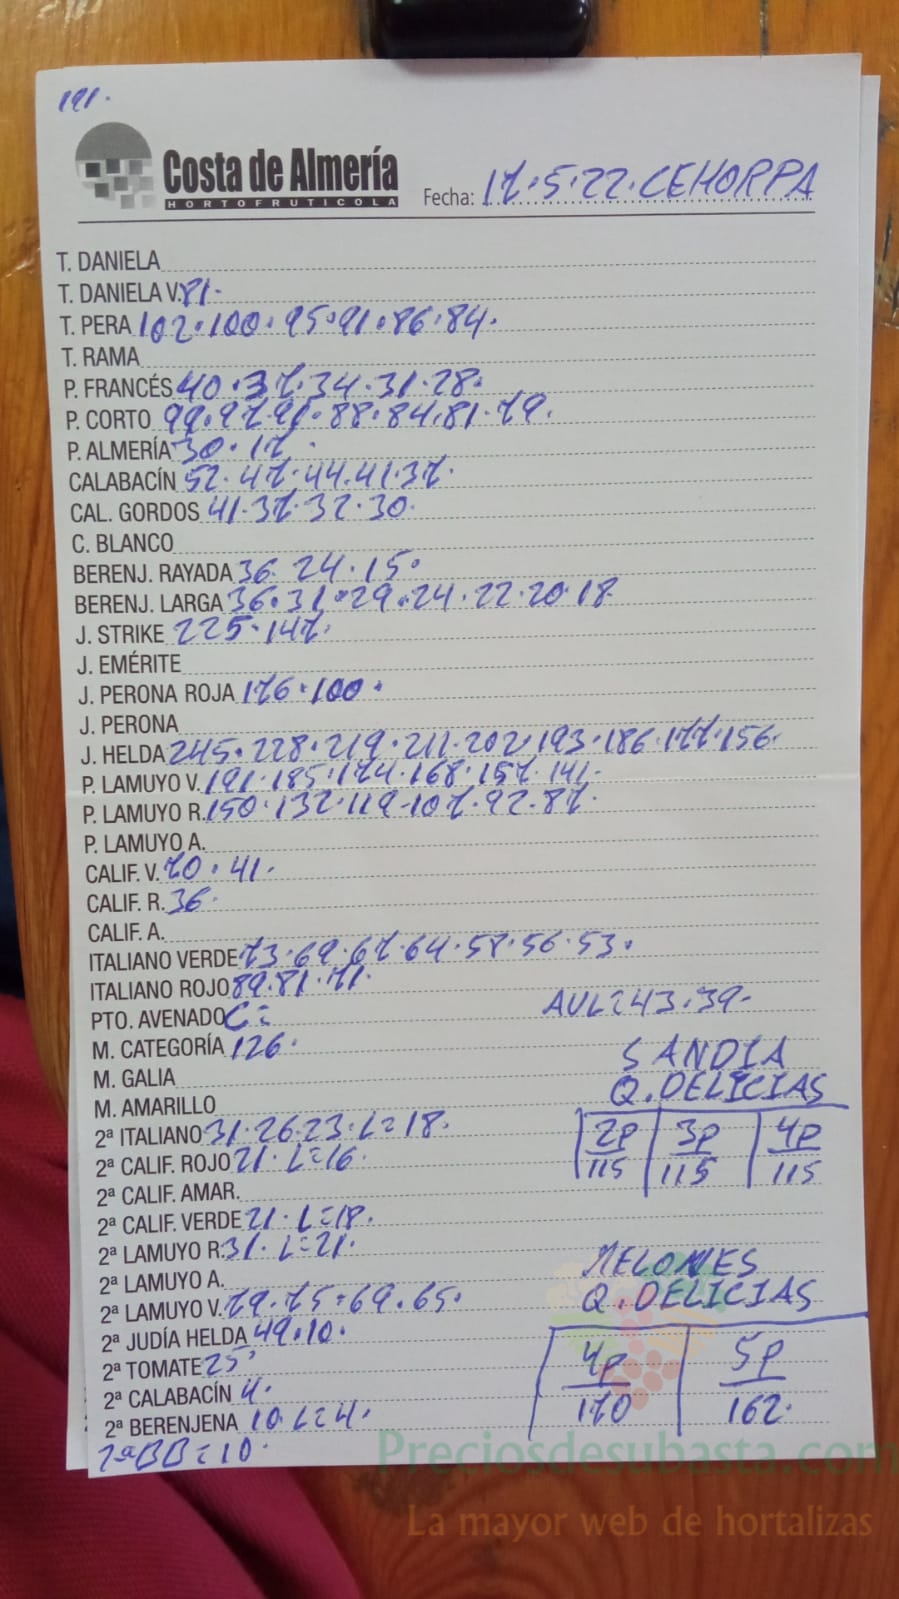 191.
Costa de Almería
HORTOFRUTICOLA
Fecha: 17.5.22. CEHORPA
T. DANIELA
T. DANIELA V. 81.
T. PERA 102.100.95.91.86.84.
T. RAMA
P. FRANCÉS 40.37.34.31.28.
P. CORTO 99.97.91.88.84.81.79.
P. ALMERÍA 30.17.
CALABACÍN 52.47.44.41.37.
CAL. GORDOS 41.37.32.30.
C. BLANCO
BERENJ. RAYADA 36.24.15.
BERENJ. LARGA 36.31.29.24.22.20.18
J. STRIKE 225.147.
J. EMÉRITE
J. PERONA ROJA 176.100.
J. PERONA
J. HELDA 245.228.219.211.202.193.186.177.156.
P. LAMUYO V. 191.185.174.168.157.141.
P. LAMUYO R. 150.132.119-107.92.87.
P. LAMUYO A.
CALIF. V. 70.41.
CALIF. R. 36.
CALIF. A.
ITALIANO VERDE 73.69.67.64.58.56.53.
ITALIANO ROJO 89.81.71.
PTO. AVENADO C= AVL=43.39.
M. CATEGORÍA 126.
M. GALIA
M. AMARILLO
2ª ITALIANO 31.26.23.L=18.
2ª CALIF. ROJO 21.L=16.
2ª CALIF. AMAR.
2ª CALIF. VERDE 21.L=18.
2ª LAMUYO R. 31.L=21.
2ª LAMUYO A.
2ª LAMUYO V. 79.75=69.65.
2ª JUDÍA HELDA 49.10.
2ª TOMATE 25
2ª CALABACÍN 4.
2ª BERENJENA 10.L=4.
2ªBB=10.
SANDIA
Q.DELICIAS
2P 3P 4P
115 115 115
MELONES
Q.DELICIAS
4P 5P
170 162.
Preciosdesubasta.com
La mayor web de hortalizas